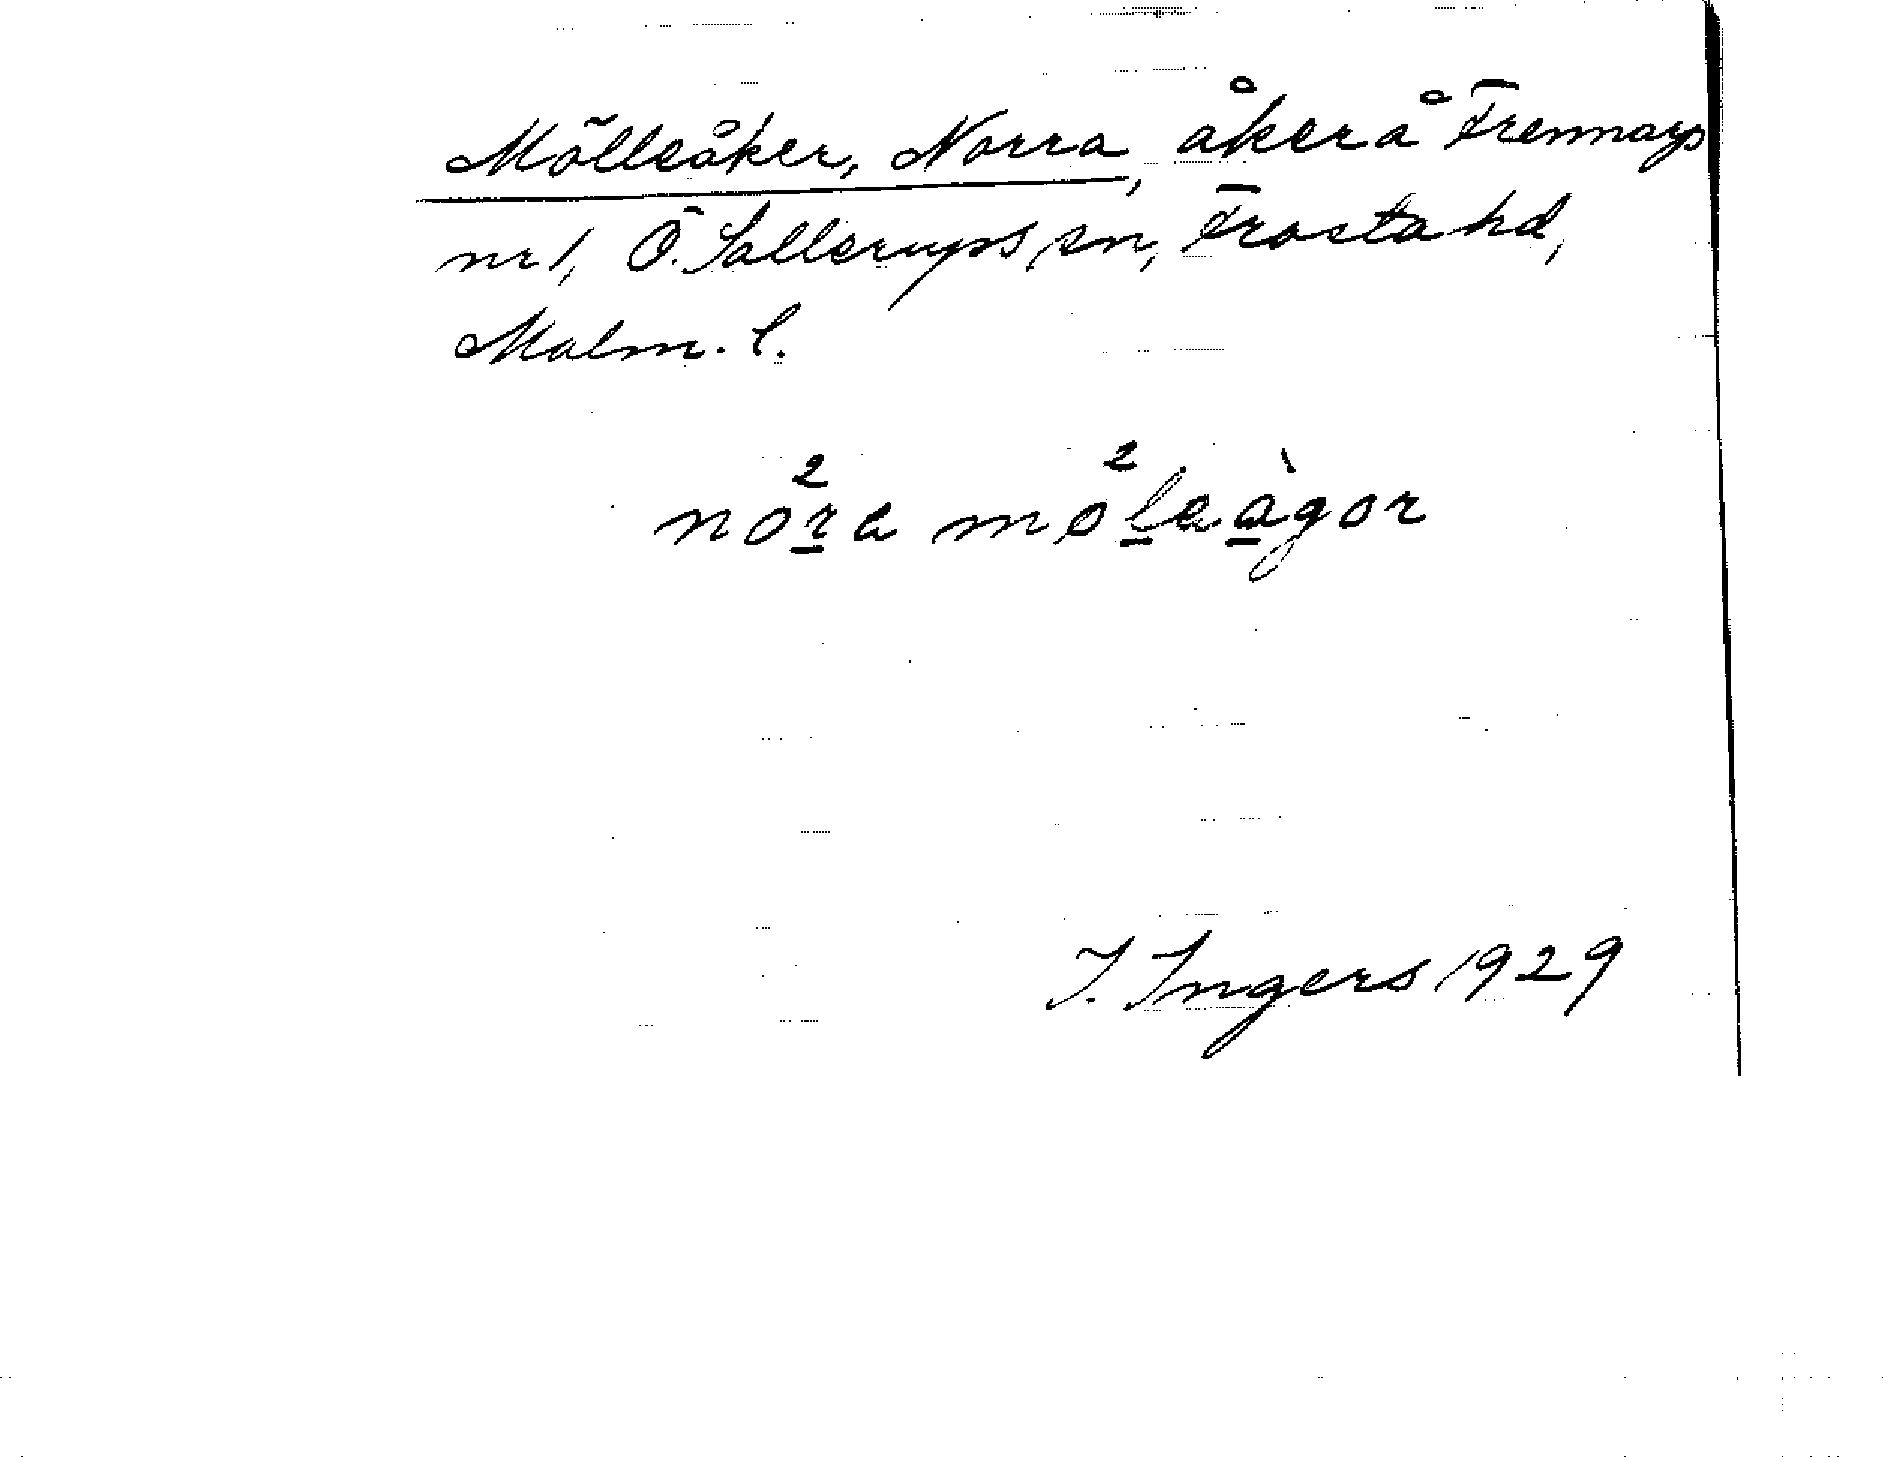 Mölleåker, Norra, åker å Frennarp
nr 1, Ö. Sallerups sn, Frosta hd,
Malm. l.
I. Ingers 1929